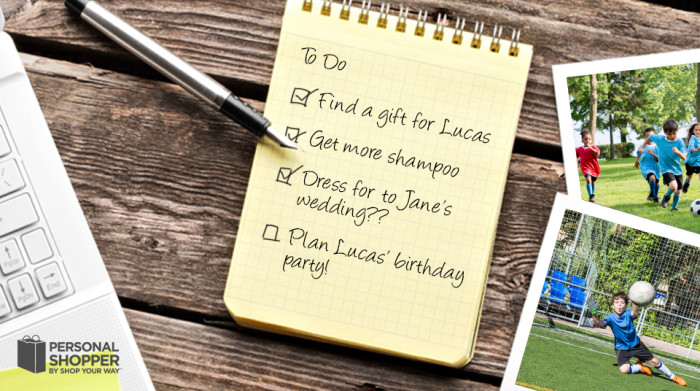 To Do
Find a gift for Lucas
Get more shampoo
Dress for to Jane's
wedding??
Plan Lucas' birthday
party!
PERSONAL
SHOPPER
BY SHOP YOUR WAY